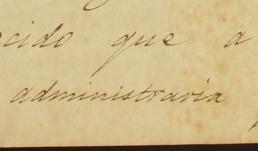 cido que a
administraria